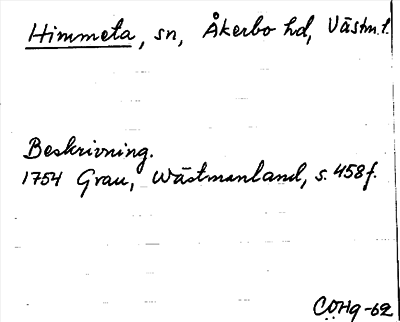 Himmeta, sn, Åkerbo hd, Västm.l.
Beskrivning.
1754 Grau, Wästmanland, s. 458 f.
COHg-62